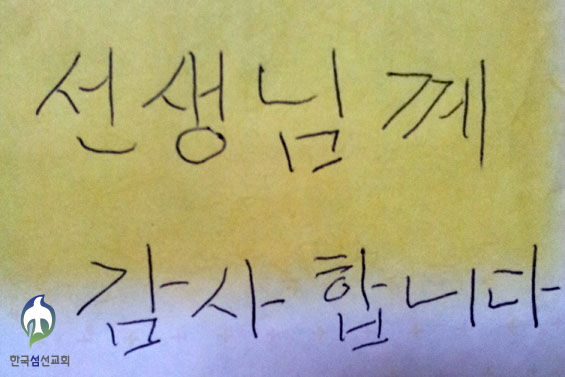 선생님께
감사합니다
한국섬선교회